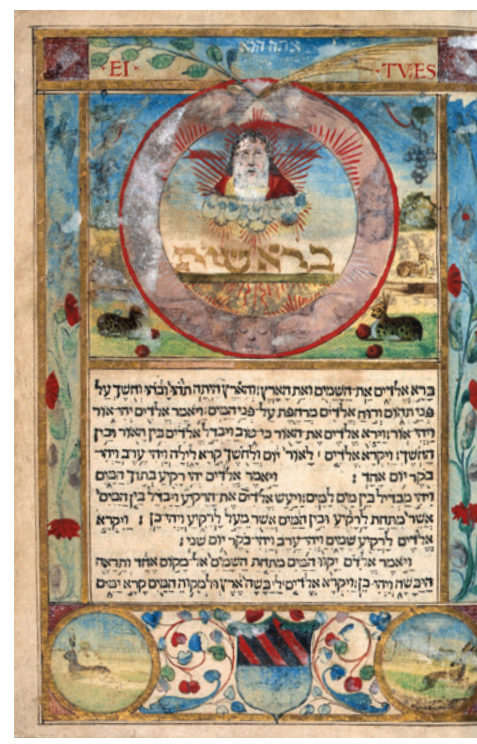 EI TV·ES
בראשית
ברא אלדים את השמים ואת הארץ: והארץ היתה תהו ובהו וחשך על
פני תהום ורוח אלדים מרחפת על פני המים: ויאמר אלדים יהי אור
ויהי אור: וירא אלדים את האור כי טוב ויבדל אלדים בין האור ובין
החשך: ויקרא אלדים לאור יום ולחשך קרא לילה ויהי ערב ויהי
בקר יום אחד: ויאמר אלדים יהי רקיע בתוך המים
ויהי מבדיל בין מים למים: ויעש אלדים את הרקיע ויבדל בין המים
אשר מתחת לרקיע ובין המים אשר מעל לרקיע ויהי כן: ויקרא
אלדים לרקיע שמים ויהי ערב ויהי בקר יום שני:
ויאמר אלדים יקוו המים מתחת השמים אל מקום אחד ותראה
היבשה ויהי כן: ויקרא אלדים ליבשה ארץ ולמקוה המים קרא ימים